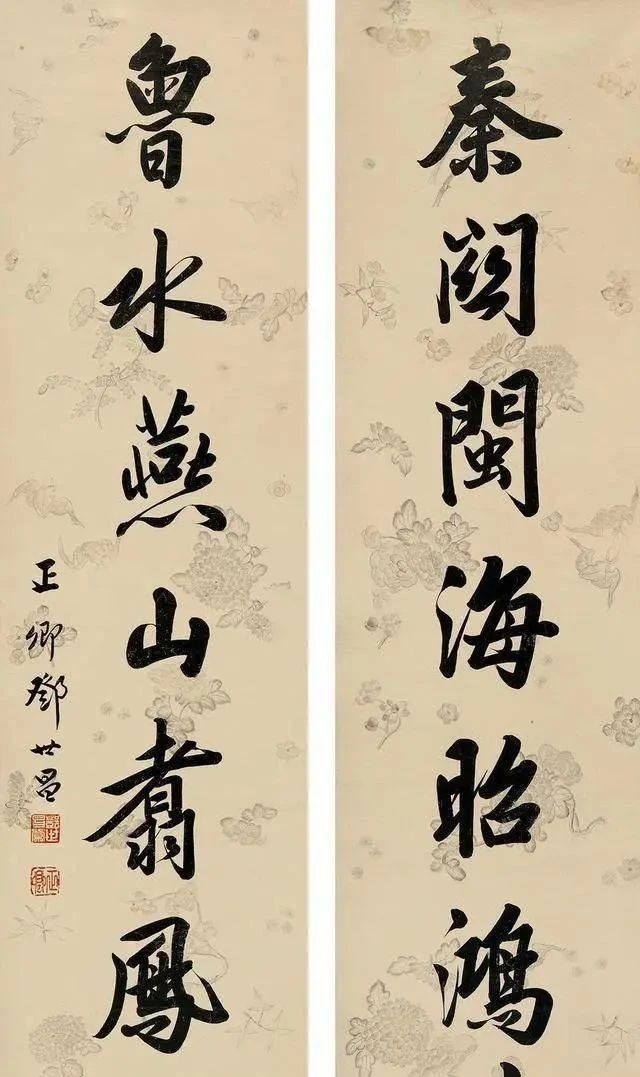 秦關閩海昭鴻
魯水燕山翥鳳
正卿鄧世昌